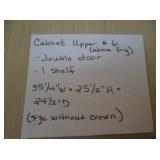 Cabinet Upper # 6
(above frig)
- double door
- 1 shelf
35 1/4" W = 25 1/2" H =
24 1/2" D
(size without crown)